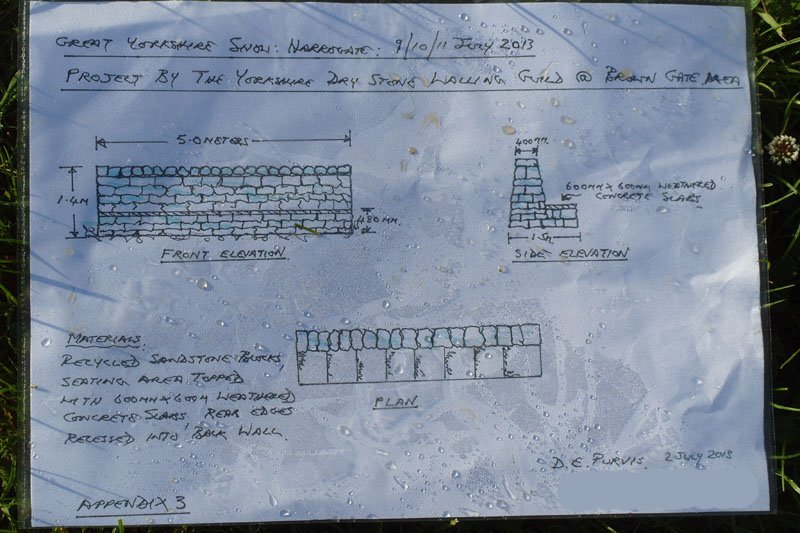 GREAT YORKSHIRE SHOW: HARROGATE: 9/10/11 JULY 2013
PROJECT BY THE YORKSHIRE DRY STONE WALLING GUILD @ BROWN GATE AREA
5.0 METERS
1.4M
480MM.
FRONT ELEVATION
400MM.
600MM X 600MM WEATHERED
CONCRETE SLABS
1.5M
SIDE ELEVATION
MATERIALS.
RECYCLED SANDSTONE BLOCKS,
SEATING AREA TOPPED
WITH 600MM X 600M WEATHERED
CONCRETE SLABS, REAR EDGES
RECESSED INTO BACK WALL.
PLAN
D.E. PURVIS. 2 JULY 2013
APPENDIX 3